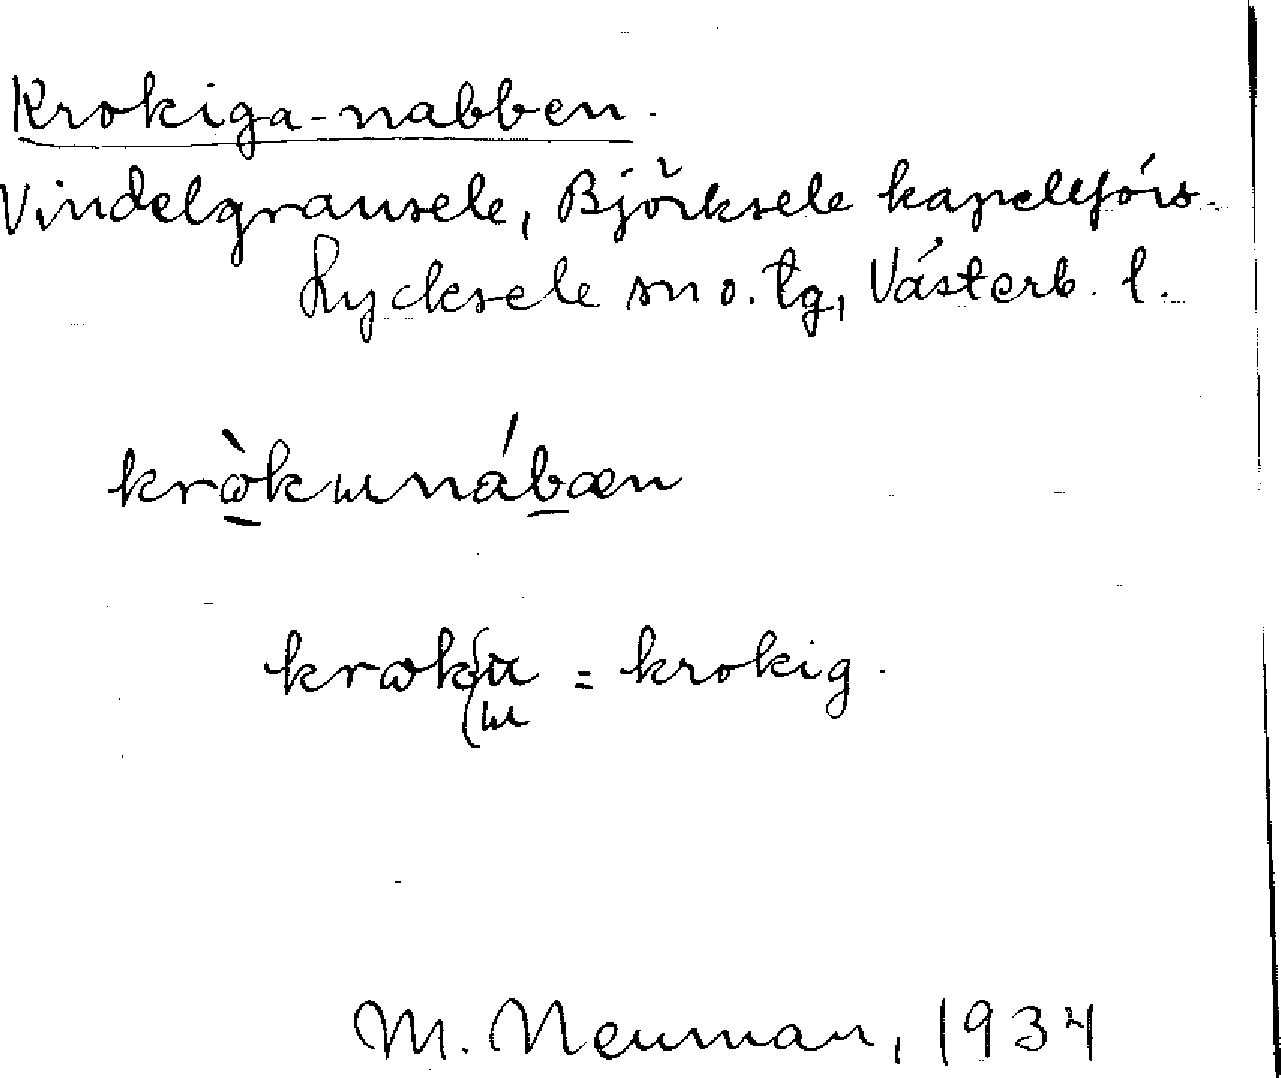 Krokiga-nabben.
Vindelgransele, Björksele kapellförs.
Lycksele sn o. tg, Västerb. l.
krɷ̀kɯnábæn
krɷk(u = krokig.
(ɯ
M. Neuman, 1934